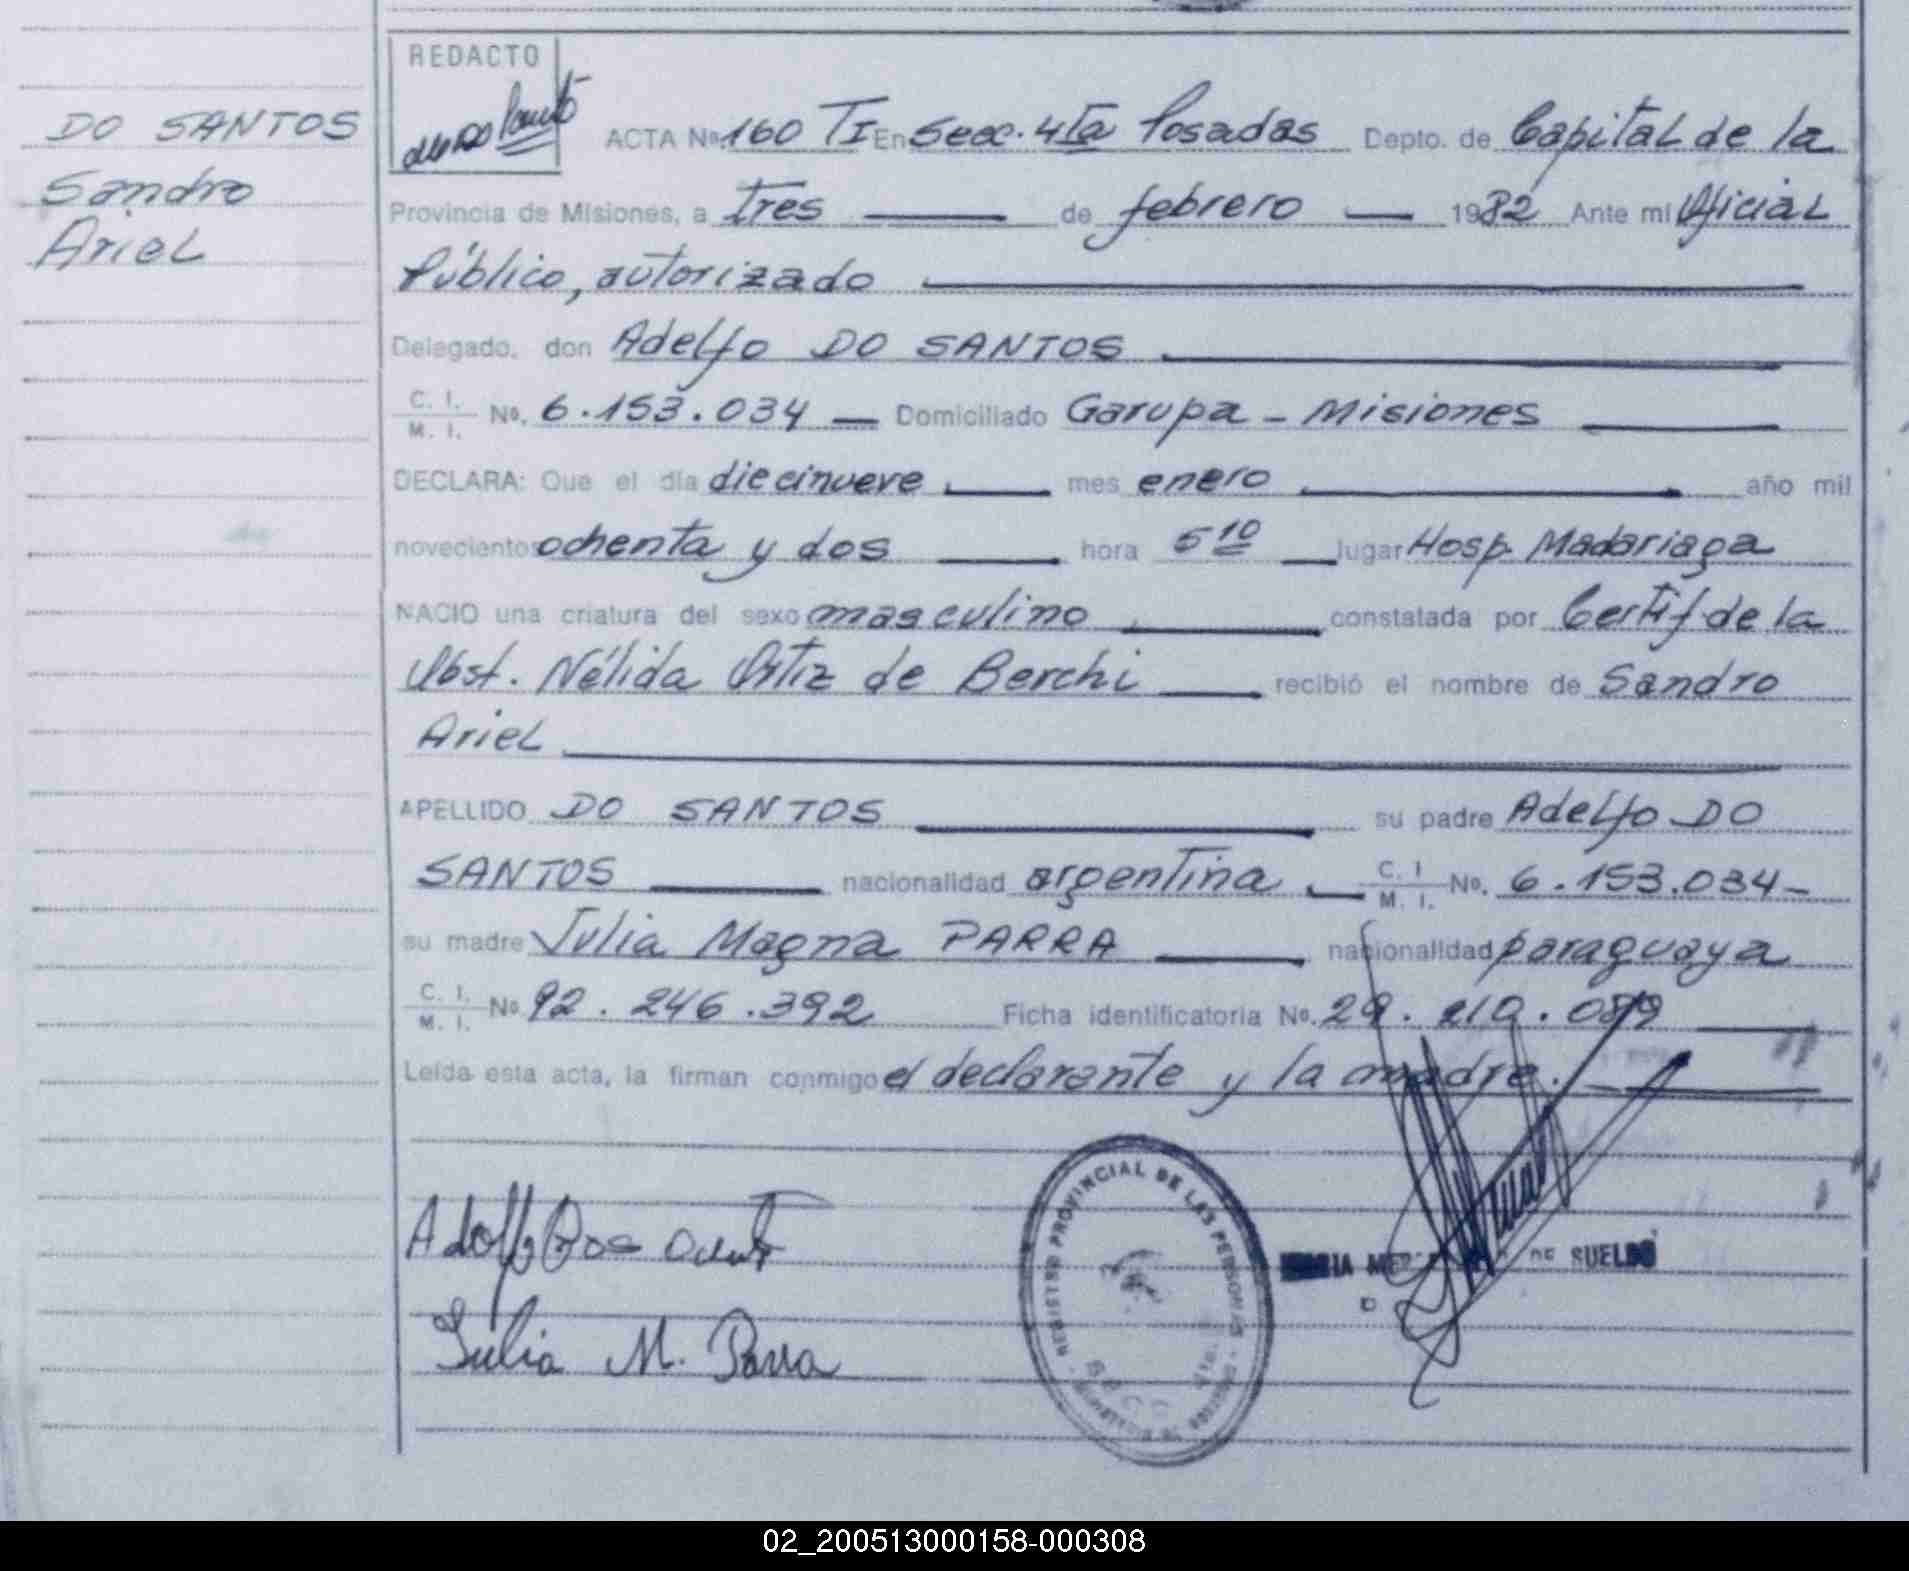 DO SANTOS
Sandro
Ariel
REDACTO
ACTA No. 160 TI En Secc. 4ta Posadas Depto. de Capital de la
Provincia de Misiones, a tres de febrero 1982 Ante mi Oficial
Público, autorizado
Delegado, don Adelfo DO SANTOS
C. I. M. I. No. 6.153.034 Domiciliado Garupa - Misiones
DECLARA: Que el día diecinueve mes enero año mil
novecientos ochenta y dos hora 5 10 lugar Hosp. Madariaga
NACIO una criatura del sexo masculino constatada por Certif de la
Obst. Nélida Ortiz de Berchi recibió el nombre de Sandro
Ariel
APELLIDO DO SANTOS su padre Adelfo DO
SANTOS nacionalidad argentina C. I M. I. No. 6.153.034-
su madre Julia Magna PARRA nacionalidad paraguaya
C. I. M. I. No. 92.246.392 Ficha identificatoria No. 29.210.089
Leída esta acta, la firman conmigo el declarante y la madre.
REGISTRO PROVINCIAL DE LAS PERSONAS
DE SUELDO
Julia M. Parra
02_200513000158-000308